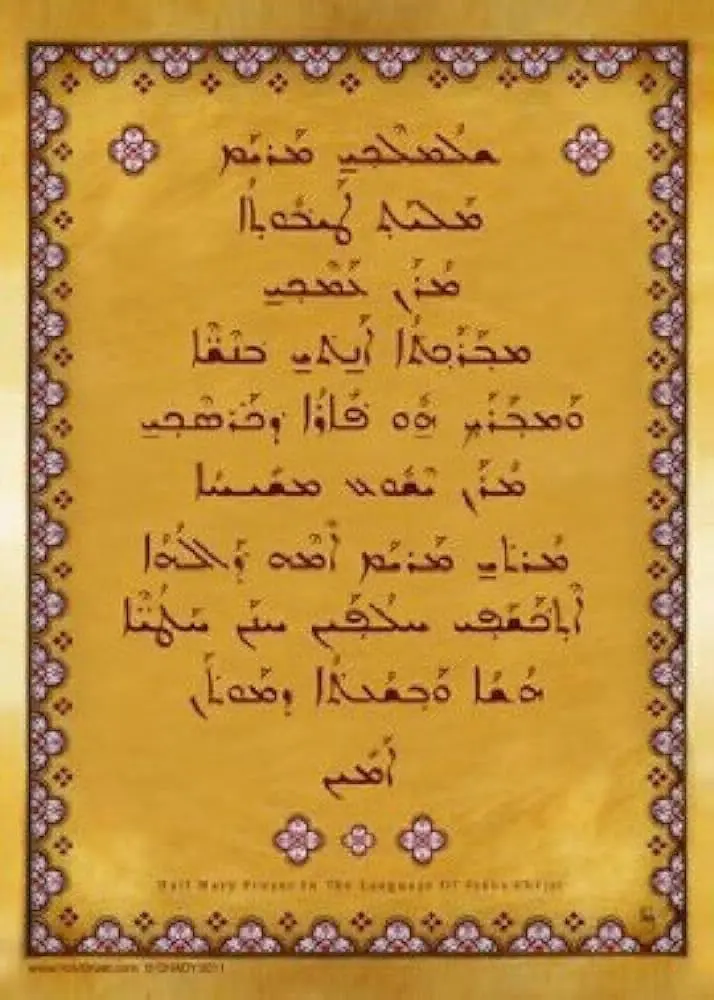 ܫܠܳܡܠܶܟ݂ܝ ܡܰܪܝܰܡ
ܡܰܠܝܰܬ݂ ܛܰܝܒܽܘܬ݂ܳܐ
ܡܳܪܰܢ ܥܰܡܶܟ݂ܝ
ܡܒܰܪܰܟ݂ܬܳܐ ܐܰܢ̱ܬܝ ܒܢܶܫ̈ܶܐ
ܘܰܡܒܰܪܰܟ݂ ܗ̱ܽܘ ܦܺܐܪܳܐ ܕܟ݂ܰܪܣܶܟ݂ܝ
ܡܳܪܰܢ ܝܶܫܽܘܥ ܡܫܺܝܚܳܐ
ܡܳܪܬܝ ܡܰܪܝܰܡ ܐܶܡܶܗ ܕܰܐܠܳܗܳܐ
ܐܶܬ݂ܟܰܫܰܦ݂ܝ ܚܠܳܦܰܝܢ ܚܢܰܢ ܚܰܛܳܝ̈ܶܐ
ܗܳܫܳܐ ܘܰܒܫܳܥܬ݂ܳܐ ܕܡܰܘܬܰܢ
ܐܰܡܺܝܢ
Hail Mary Prayer In The Language Of Jesus Christ
© GHADY 2011